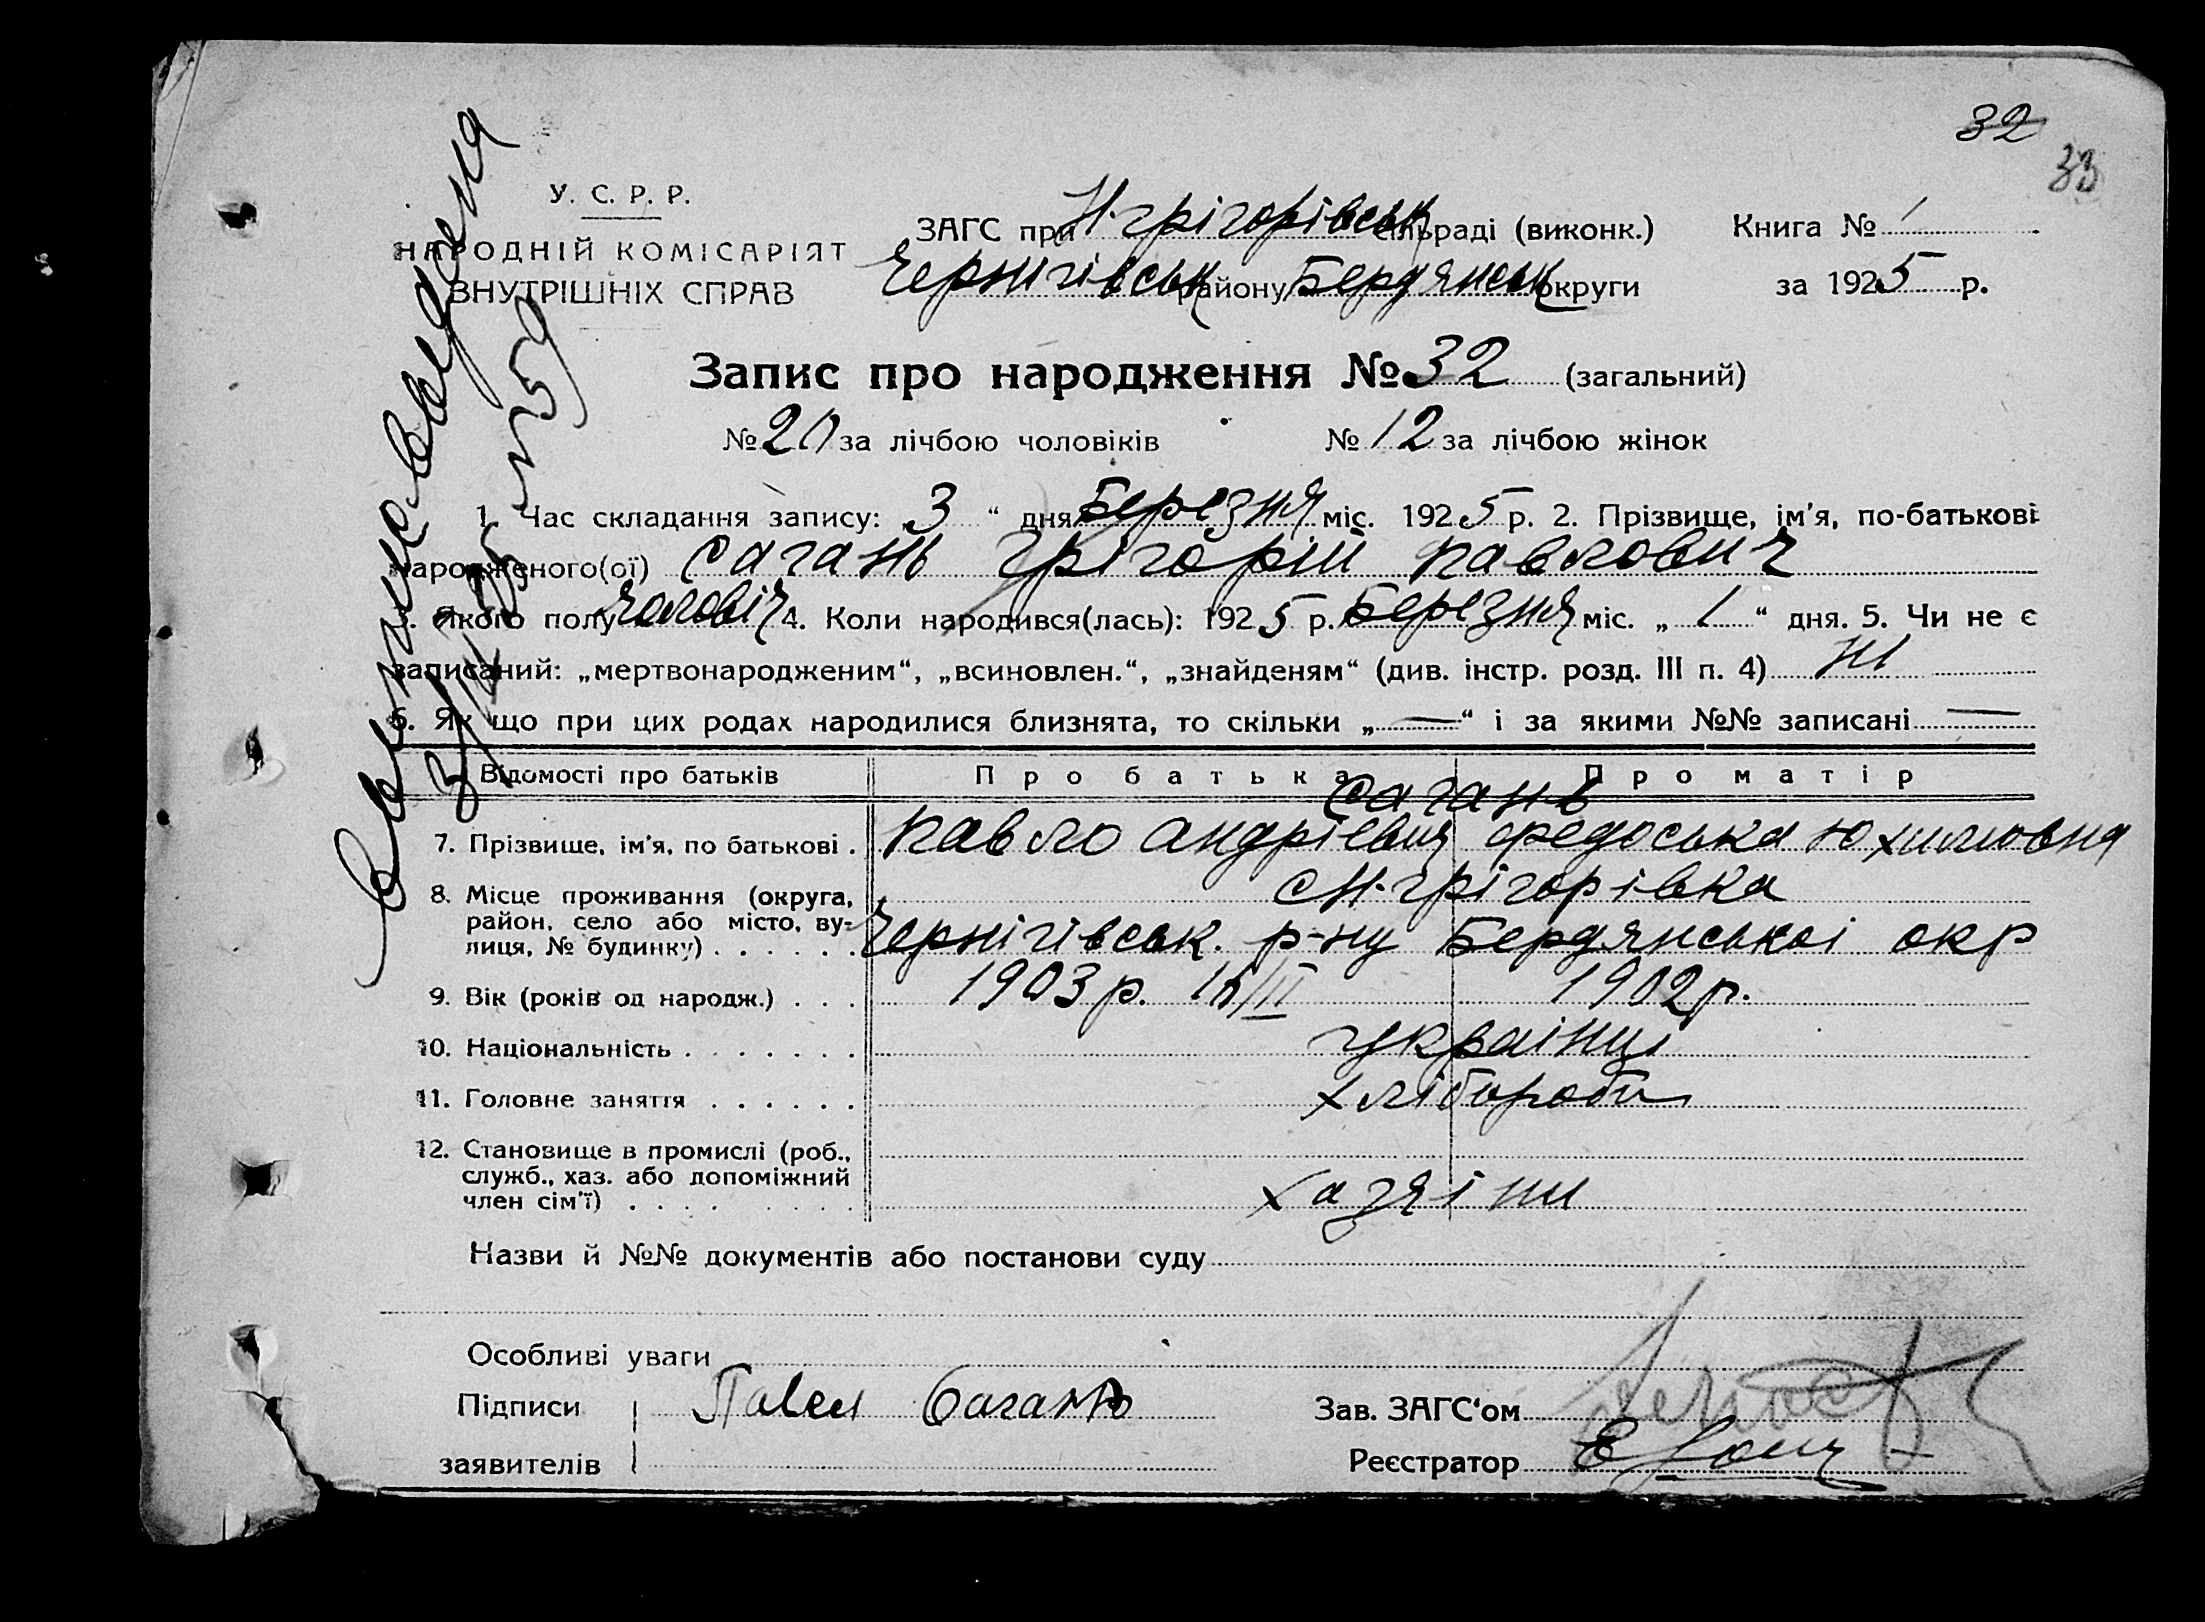 32
33
У. С. Р. Р.
НАРОДНІЙ КОМІСАРІЯТ
ВНУТРІШНІХ СПРАВ
ЗАГС при Н-Грігорівськ сільраді (виконк.) Книга № 1
Чернігівськ району Бердянськ округи за 1925 р.
Запис про народження № 32 (загальний)
№ 20 за лічбою чоловіків № 12 за лічбою жінок
1. Час складання запису: „3“ дня Березня міс. 1925 р. 2. Прізвище, ім'я, по-батькові
народженого(ої) Сагань Грігорій Павлович
3. Якого полу чоловіч 4. Коли народився(лась): 1925 р. Березня міс. „1“ дня. 5. Чи не є
записаний: „мертвонародженим“, „всиновлен.“, „знайденям“ (див. інстр. розд. III п. 4) ні
6. Як що при цих родах народилися близнята, то скільки „—“ і за якими №№ записані —
Відомості про батьків Про батька Про матір
Сагань
7. Прізвище, ім'я, по батькові . Павло Андрієвич Федоська Юхимовна
8. Місце проживання (округа, с Н-Грігорівка
район, село або місто, ву-
лиця, № будинку) . . . . . . Чернігівськ. р-ну Бердянськоі окр
9. Вік (років од народж.) . . . 1903 р. 1902 р.
10. Національність . . . . . . . українці
11. Головне заняття . . . . . . хлібороби
12. Становище в промислі (роб.,
служб., хаз. або допоміжний
член сім'ї) . . . . хазяіни
Назви й №№ документів або постанови суду
Особливі уваги
Підписи Павел Сагань Зав. ЗАГС'ом
заявителів Реєстратор